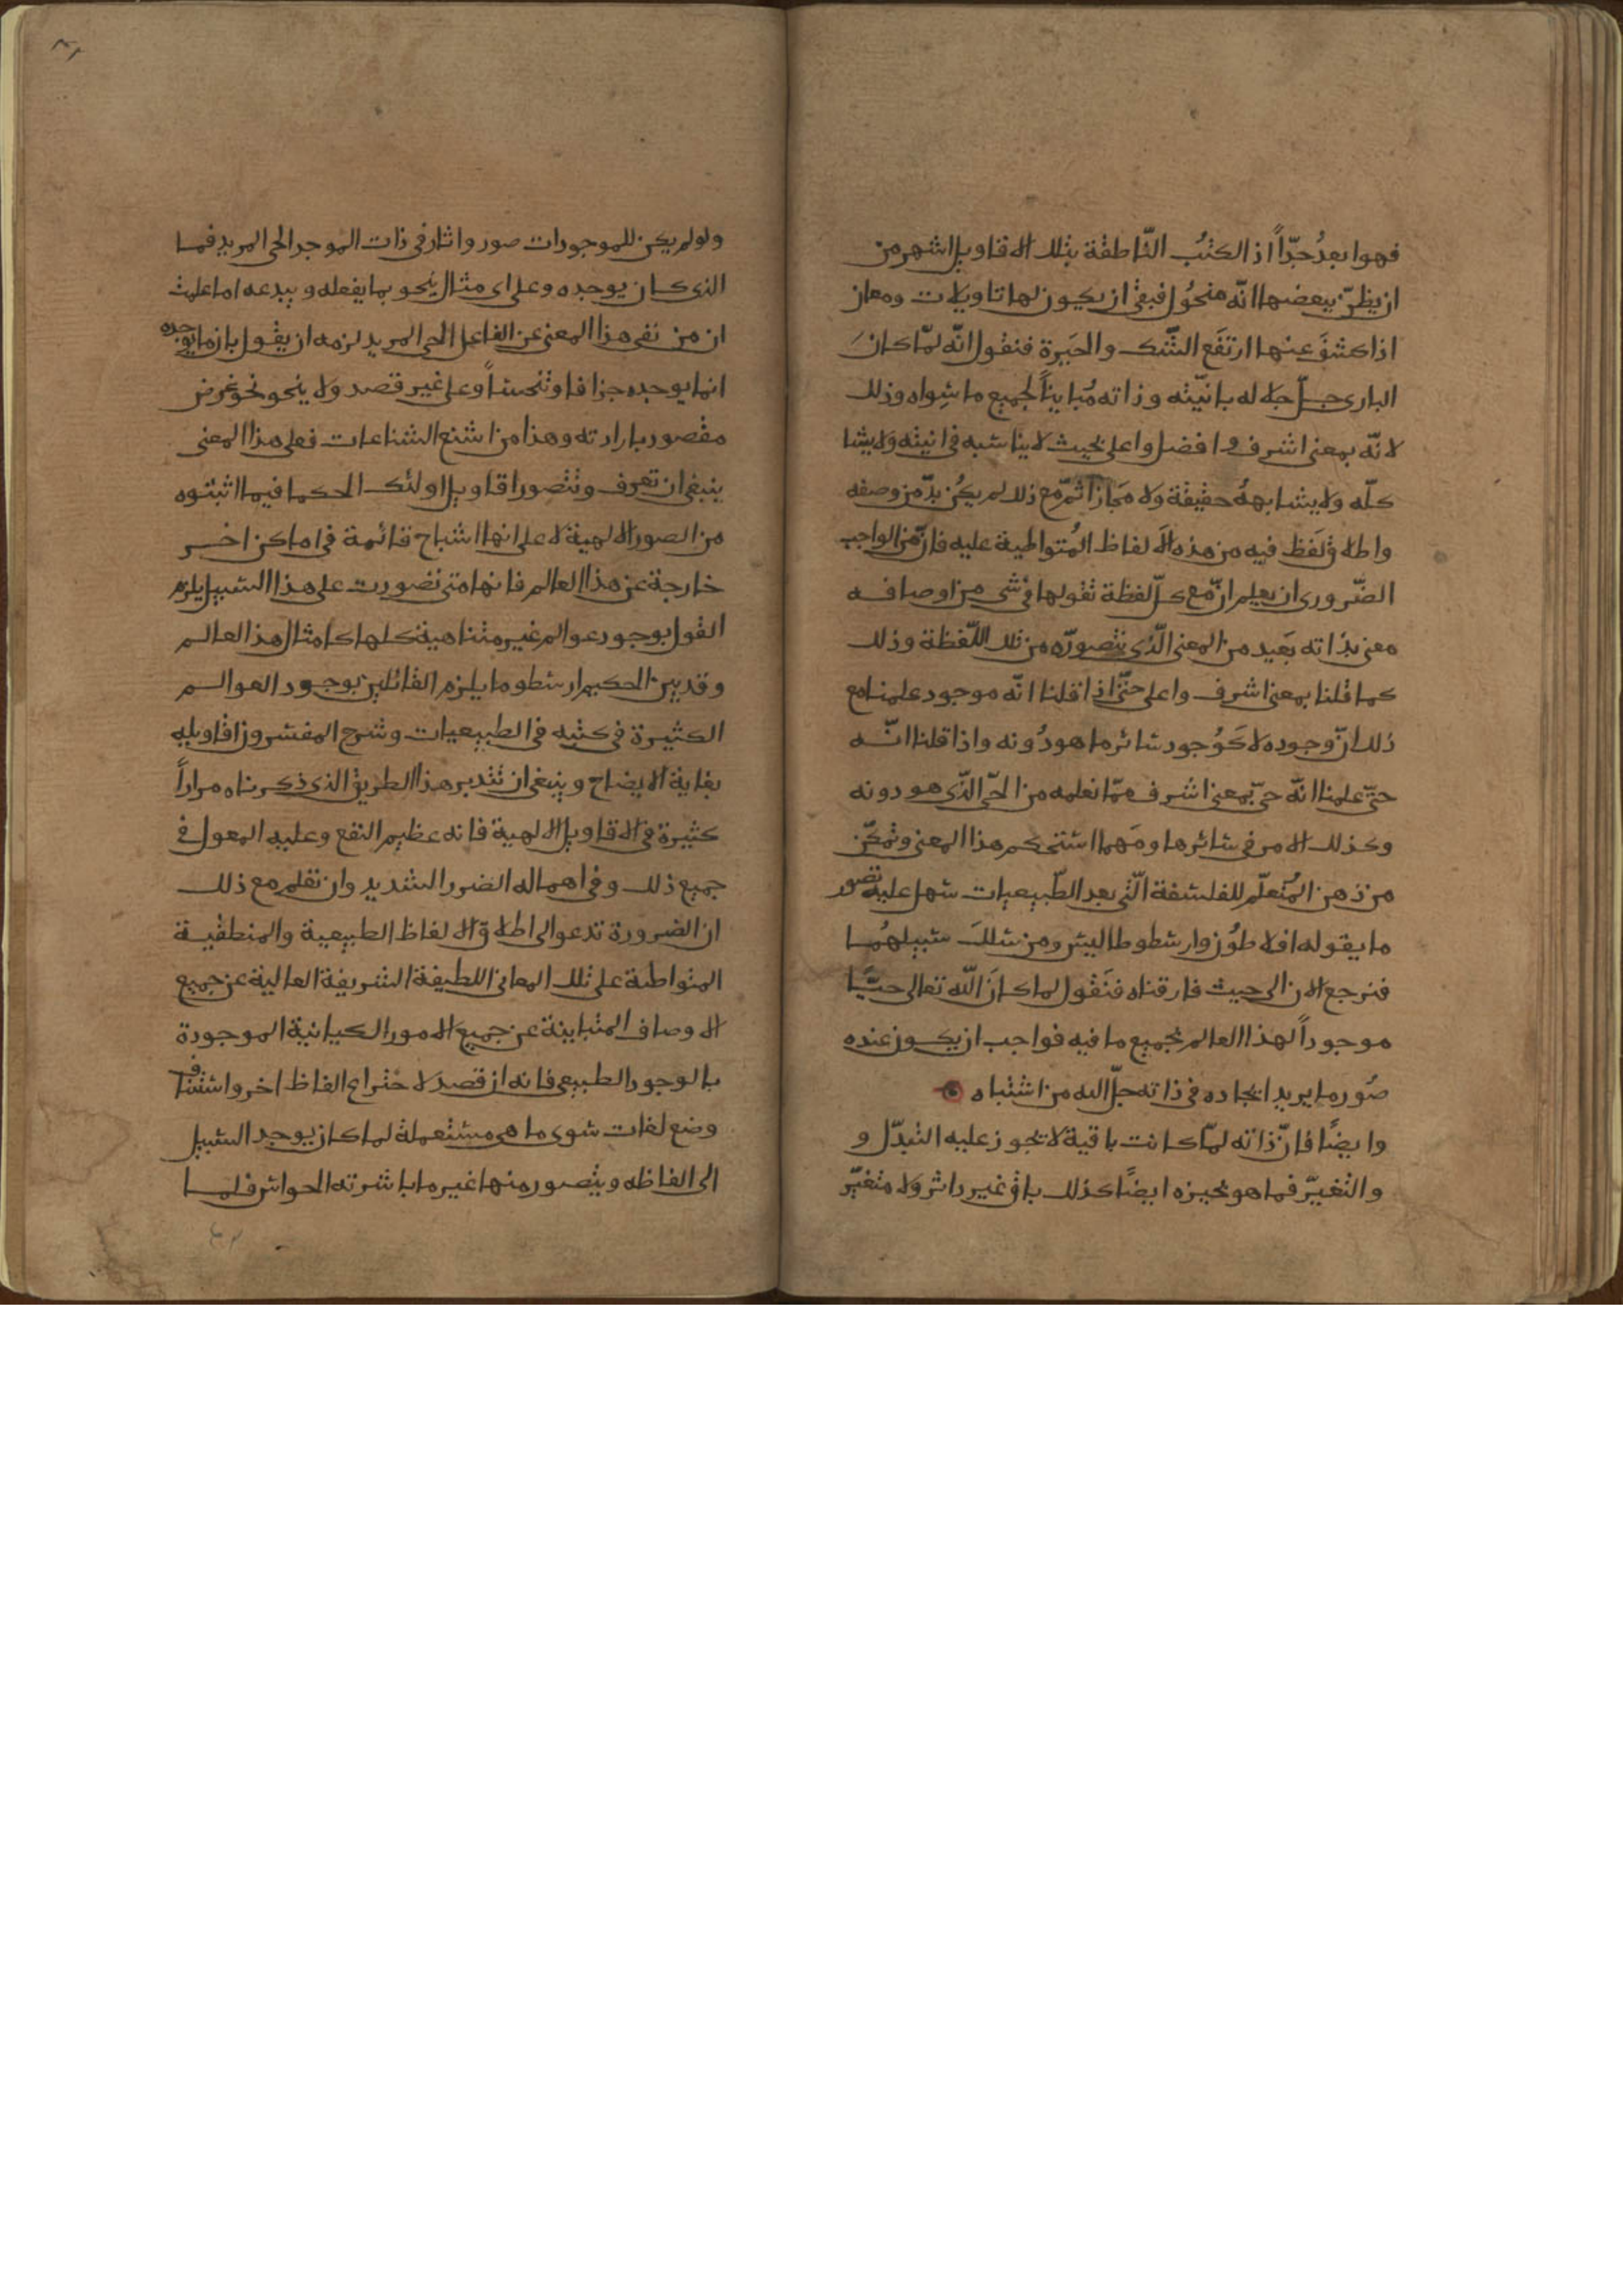 فهوا بعدُ جدّاً اذ الكتبُ النّاطقة بتلك الاقاويل اشهر من
ان يظنّ ببعضها انّه منحُول فبقى ان يكون لها تاويلات ومعان
اذا كشفَ عنها ارتفَع الشّك والحَيرة فنقول انّه لمّا كانَ
البارى جلّ جلاله بانّيته وذاته مُبايناً لجميع ما سِواه وذلك
لانّه بمعنى اشرف و افضل واعلى بحيث لا يناسبه فى انيته ولا يشا
كلّه ولا يشابههُ حقيقة ولا مَجازاً ثمّ مع ذلك لم يكُن بدّ من وصفه
واطلاق لَفظ فيه من هذه الالفاظ المُتواطية عليه فانّ من الواجب
الضّرورى ان يعلم انّ مع كلّ لفظة نقولها فى شى من اوصافه
معنى بذاته بَعيد من المعنى الّذى نتصوّره من تلك اللّفظة وذلك
كما قلنا بمعنى اشرف واعلى حتّى اذا قلنا انّه موجود علمنا مع
ذلك انّ وجوده لا كَوُجود سائر ما هو دُونه واذا قلنا انّه
حىّ علمنا انّه حىّ بمعنى اشرف ممّا نعلمه من الحىّ الّذى هو دونه
وكذلك الامر فى سائرها ومَهما استحكم هذا المعنى وتمكّن
من ذهن المُتعلّم للفلسفة الّتى بعد الطّبيعيات سهل عليه تصور
ما يقوله افلاطُون وارسطوطاليس ومن سَلكَ سبيلهُما
فنرجع الان الى حيث فارقناه فنَقول لما كانَ اللّه تعالى حيّاً
موجوداً لهذا العالم بجميع ما فيه فواجب ان يكون عنده
صُور ما يريد ايجاده فى ذاته جلّ اله من اشتباه
وايضًا فانّ ذاته لمّا كانت باقية لا تجوز عليه التبدّل و
والتّغيّر فما هو بحيزه ايضًا كذلك باق غير داثر ولا متغيّر
ولو لم يكن للموجودات صور واثار فى ذات الموجد الحى المريد فما
الذى كان يوجده وعلى اى مثال ينحو بما يفعله ويبدعه اما علمت
ان من نفى هذا المعنى عن الفاعل الحى المريد لزمه ان يقول بان ما يوجده
انما يوجده جزافا وتنحسًا وعلى غير قصد ولا ينحو نحو غرض
مقصور بارادته وهذا من اشنع الشناعات فعلى هذا المعنى
ينبغى ان تعرف وتتصور اقاويل اولئك الحكما فيما اثبتوه
من الصور الالهية لا على انها اشباح قائمة فى اماكن اخر
خارجة عن هذا العالم فانها متى تصورت على هذا السبيل يلزم
القول بوجود عوالم غير متناهية كلها كامثال هذا العالم
وقد بين الحكيم ارسطو ما يلزم القائلين بوجود العوالم
الكثيرة فى كتبه فى الطبيعيات وشرح المفسرون اقاويله
بغاية الايضاح وينبغى ان تتدبر هذا الطريق الذى ذكرناه مراراً
كثيرة فى الاقاويل الالهية فانه عظيم النفع وعليه المعول فى
جميع ذلك وفى اهماله الضرر الشديد وان تعلم مع ذلك
ان الضرورة تدعوا الى اطلاق الالفاظ الطبيعية والمنطقية
المتواطئة على تلك المعانى اللطيفة الشريفة العالية عن جميع
الاوصاف المتباينة عن جميع الامور الكيانية الموجودة
بالوجود الطبيعى فانه ان قصد لاختراع الفاظ اخر واستئناف
وضع لغات سوى ما هى مستعملة لما كان يوجد السبيل
الى الفاظه ويتصور منها غير ما باشرته الحواس فلما